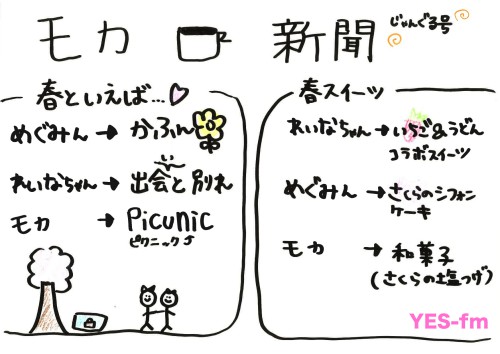 モカ 新聞 じゃんぐる号
春といえば…
めぐみん → かふん
れいなちゃん → 出会と別れ
モカ → Picunic
ピクニック⤴
春スイーツ
れいなちゃん → いちご&うどん
コラボスイーツ
めぐみん → さくらのシフォン
ケーキ
モカ → 和菓子
(さくらの塩づけ)
YES-fm